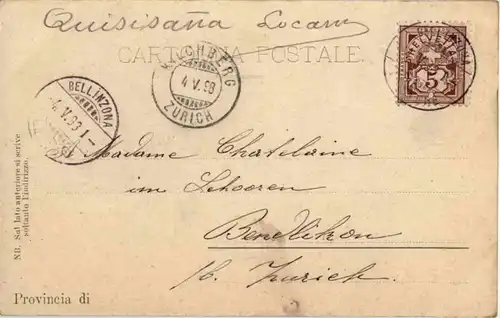 Quisisana Locarn
CARTOLINA POSTALE
HELVETIA
5
KILCHBERG
4 V. 98
ZÜRICH
BELLINZONA
4.V.98 1-
Madame Chatelaine
im Schooren
Bendlikon
b/ Zurich
NB. Sul lato anteriore si scrive
soltanto l'indirizzo.
Provincia di